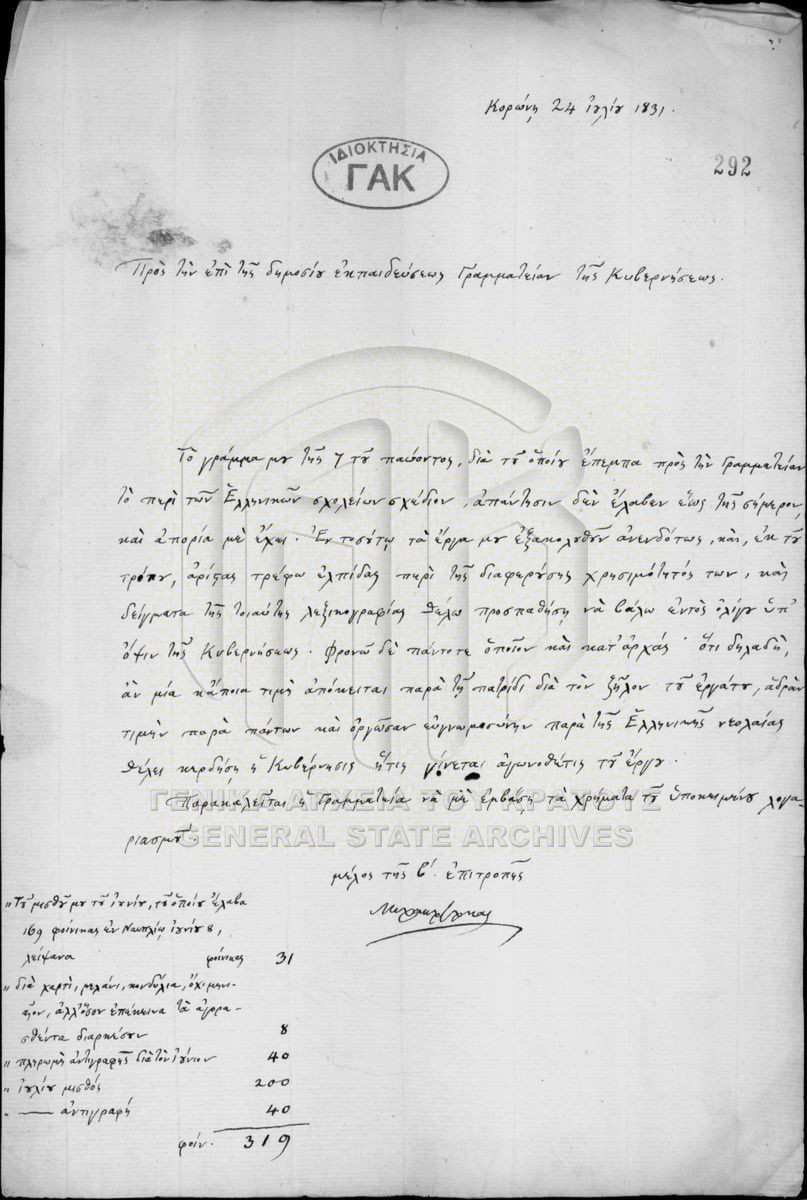 Κορώνη 24 ἰουλίου 1831.
ΙΔΙΟΚΤΗΣΙΑ
ΓΑΚ
292
Πρὸς τὴν ἐπὶ τῆς δημοσίου ἐκπαιδεύσεως Γραμματείαν τῆς Κυβερνήσεως.
Τὸ γράμμα μου τῆς 7 τοῦ παύοντος, διὰ τοῦ ὁποίου ἔπεμπα πρὸς τὴν Γραμματείαν
τὸ περὶ τῶν Ἑλληνικῶν σχολείων σχέδιον, ἀπάντησιν δὲν ἔλαβεν ἕως τῆς σήμερον,
καὶ ἀπορία μὲ ἔχει. Ἐν τοσούτῳ τὰ ἔργα μου ἐξακολουθοῦν ἀνενδότως, καὶ, ἐκ τοῦ
τρόπου, ἀρίστας τρέφω ἐλπίδας περὶ τῆς διαφερούσης χρησιμότητός των, καὶ
δείγματα τῆς τοιαύτης λεξικογραφίας θέλω προσπαθήσῃ νὰ βάλω ἐντὸς ὀλίγου ὑπ'
ὄψιν τῆς Κυβερνήσεως. Φρονῶ δὲ πάντοτε ὁποῖον καὶ κατ' ἀρχάς· ὅτι δηλαδὴ,
ἂν μία κάποια τιμὴ ἀπόκειται παρὰ τῇ πατρίδι διὰ τὸν ζῆλον τοῦ ἐργάτου, ἁδρὰν
τιμὴν παρὰ πάντων καὶ ὀργῶσαν εὐγνωμοσύνην παρὰ τῆς Ἑλληνικῆς νεολαίας
θέλει κερδήσῃ ἡ Κυβέρνησις ἥτις γίνεται ἀγωνοθέτις τοῦ ἔργου.
Παρακαλεῖται ἡ Γραμματεία νὰ μὲ ἐμβάσῃ τὰ χρήματα τοῦ ὑποκειμένου λογα-
ριασμοῦ
ΓΕΝΙΚΑ ΑΡΧΕΙΑ ΤΟΥ ΚΡΑΤΟΥΣ
GENERAL STATE ARCHIVES
μέλος τῆς β'. ἐπιτροπῆς
„ Τοῦ μισθοῦ μου τοῦ ἰουνίου, τοῦ ὁποίου ἔλαβα
169 φοίνικας ἐν Ναυπλίῳ ἰουνίου 8,
λείψανα φοίνικας 31
„ διὰ χαρτὶ, μελάνι, κονδύλια, ὄχι μηνι-
αῖον, ἀλλ' ὅσον ἐπέκεινα τὰ ἀγορα-
σθέντα διαρκέσουν 8
„ πληρωμὴ ἀντιγραφῆς διὰ τὸν ἰούνιον 40
„ ἰουλίου μισθὸς 200
„ —— ἀντιγραφή 40
φοίν. 319